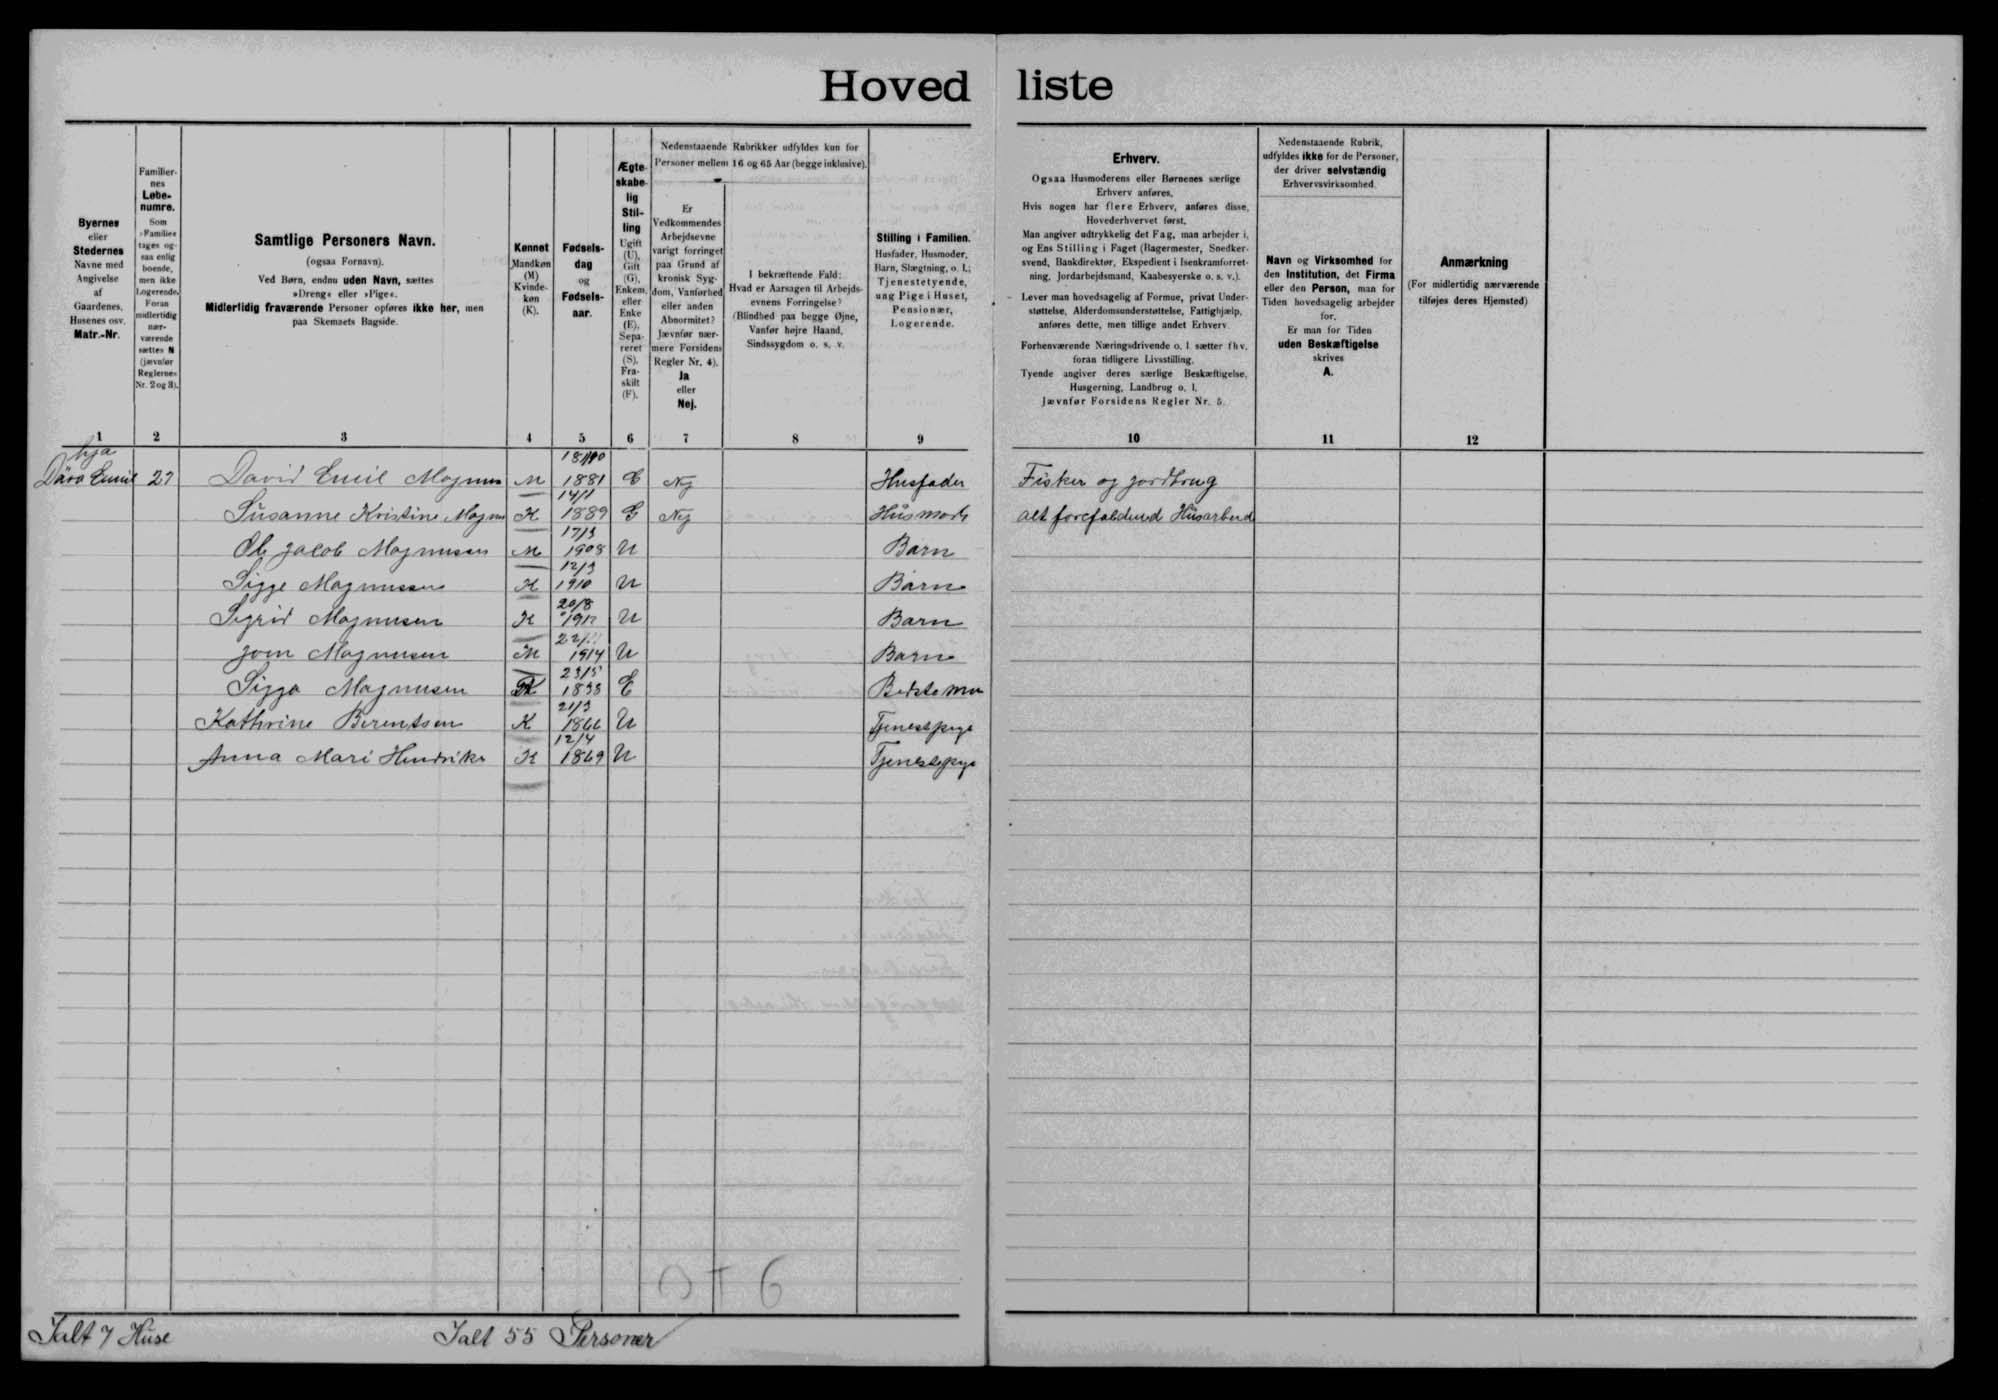 Hoved liste
Byernes
eller
Stedernes
Navne med
Angivelse
af
Gaardenes,
Husenes osv.
Matr.-Nr.
Familier-
nes
Løbe-
numre.
Som
»Familie«
tages og-
saa enlig
boende,
men ikke
Logerende.
Foran
midlertidig
nær-
værende
sættes N
(jævnfør
Reglernes
Nr. 2 og 3).
Samtlige Personers Navn.
(ogsaa Fornavn).
Ved Børn, endnu uden Navn, sættes
»Dreng« eller »Pige«.
Midlertidig fraværende Personer opføres ikke her, men
paa Skemaets Bagside.
Kønnet
Mandkøn
(M)
Kvinde-
køn
(K).
Fødsels-
dag
og
Fødsels-
aar.
Ægte-
skabe-
lig
Stil-
ling
Ugift
(U),
Gift
(G),
Enkem.
eller
Enke
(E),
Sepa-
reret
(S),
Fra-
skilt
(F).
Nedenstaaende Rubrikker udfyldes kun for
Personer mellem 16 og 65 Aar (begge inklusive).
Er
Vedkommendes
Arbejdsevne
varigt forringet
paa Grund af
kronisk Syg-
dom, Vanførhed
eller anden
Abnormitet?
Jævnfør nær-
mere Forsidens
Regler Nr. 4).
Ja
eller
Nej.
I bekræftende Fald:
Hvad er Aarsagen til Arbejds-
evnens Forringelse?
(Blindhed paa begge Øjne,
Vanfør højre Haand,
Sindssygdom o. s. v.
Stilling i Familien.
Husfader, Husmoder,
Barn, Slægtning, o. l.;
Tjenestetyende,
ung Pige i Huset,
Pensionær,
Logerende.
Erhverv.
Ogsaa Husmoderens eller Børnenes særlige
Erhverv anføres.
Hvis nogen har flere Erhverv, anføres disse,
Hovederhvervet først.
Man angiver udtrykkelig det Fag, man arbejder i,
og Ens Stilling i Faget (Bagermester, Snedker-
svend, Bankdirektør, Ekspedient i Isenkramforret-
ning, Jordarbejdsmand, Kaabesyerske o. s. v.).
Lever man hovedsagelig af Formue, privat Under-
støttelse, Alderdomsunderstøttelse, Fattighjælp,
anføres dette, men tillige andet Erhverv.
Forhenværende Næringsdrivende o. l. sætter fhv.
foran tidligere Livsstilling.
Tyende angiver deres særlige Beskæftigelse,
Husgerning, Landbrug o. l.
Jævnfør Forsidens Regler Nr. 5.
Nedenstaaende Rubrik,
udfyldes ikke for de Personer,
der driver selvstændig
Erhvervsvirksomhed.
Navn og Virksomhed for
den Institution, det Firma
eller den Person, man for
Tiden hovedsagelig arbejder
for.
Er man for Tiden
uden Beskæftigelse
skrives
A.
Anmærkning
(For midlertidig nærværende
tilføjes deres Hjemsted)
1 2 3 4 5 6 7 8 9 10 11 12
hja
Emil 27 David Emil Magnus M 1881 Nej Husfader Fisker og jordbrug
14/1
Susanne Kristine Magnus K 1889 G Nej Husmode alt forefaldend Husarbeid
17/3
Ole Jacob Magnusen M 1908 U Barn
12/3
Sigge Magnussen K 1910 U Barn
20/8
Sigrid Magnusen K U Barn
Magnusen M 1914 U Barn
23/5
Sigga Magnusen K E Bedstemor
21/3
Kathrine Berentsen K 1866 U Tjenestepige
12/4
Anna Mari Hendriks K 1869 U Tjenestepige
6
Ialt 7 Huse Ialt 55 Personer